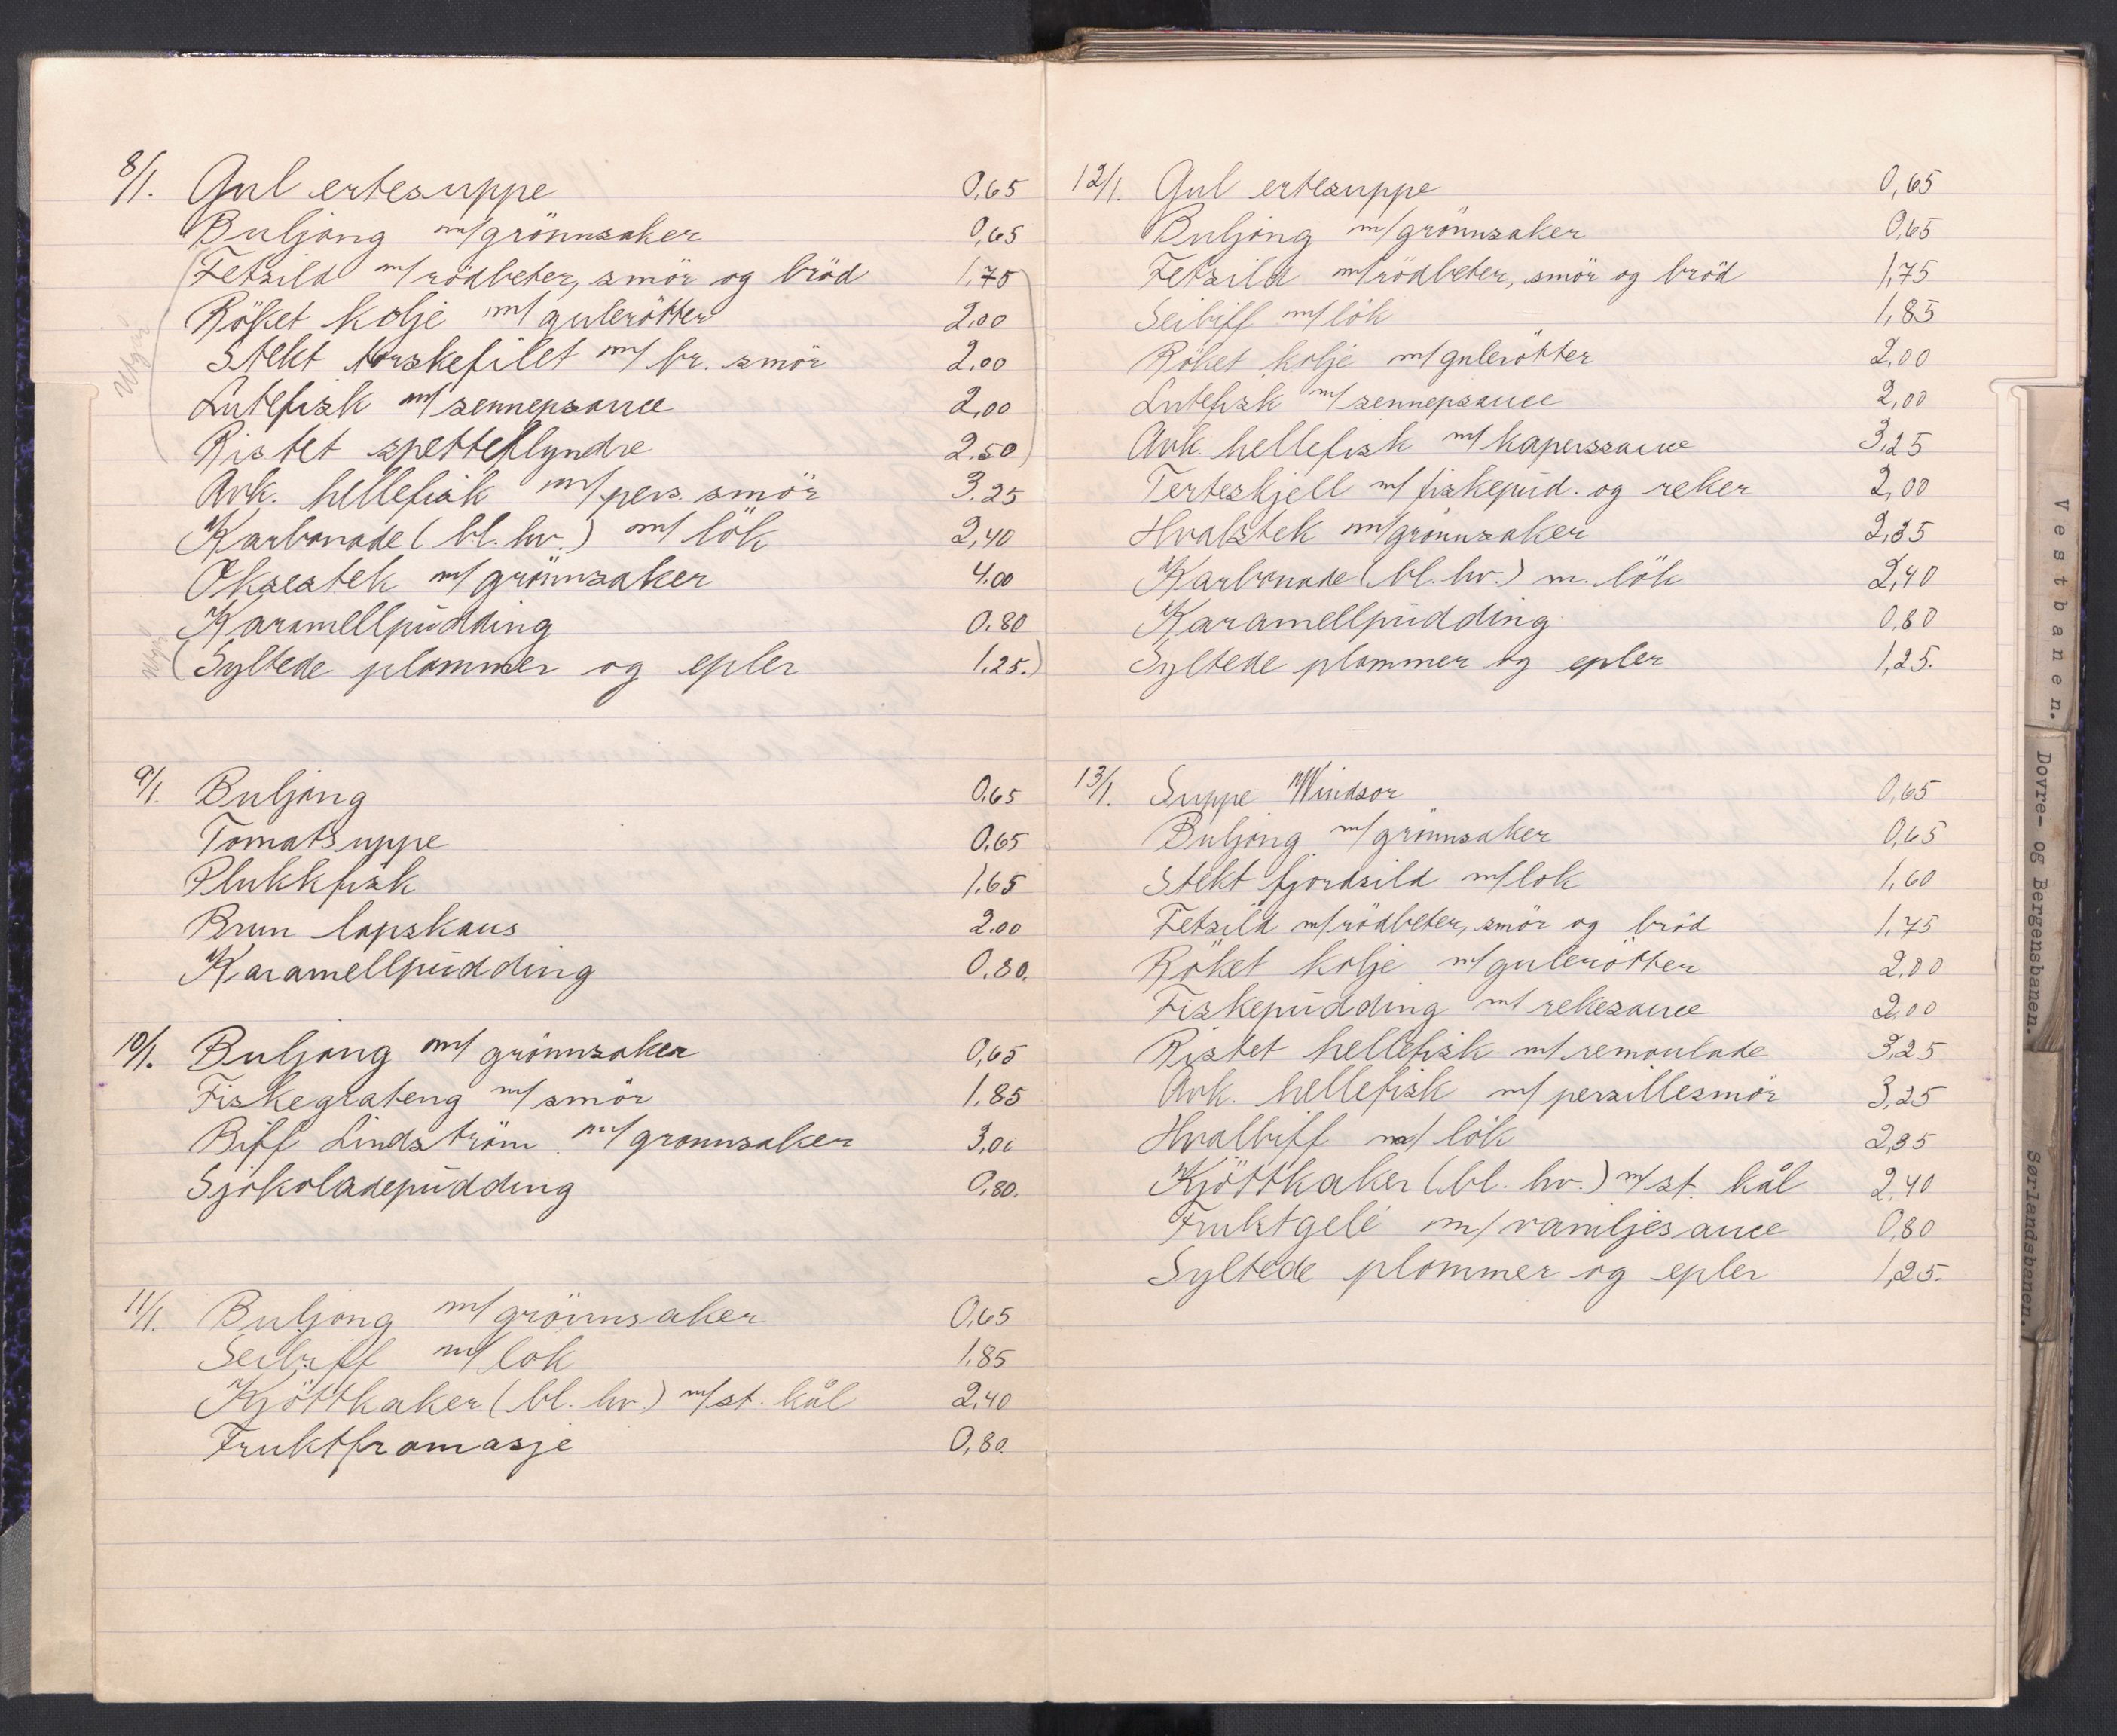 8/1. Gul ertesuppe 0,65
Buljong m/grönnsaker 0,65
(Fetsild m/rödbeter, smör og bröd 1,75
Röket kolje m/gulerötter 2,00
Stekt torskefilet m/ br. smör 2,00
Utgår
Lutefisk m/sennepsauce 2,00
Ristet spetteflyndre 2.50)
Avk. hellefisk m/pers. smör 3.25
Karbonade (bl. hv.) m/ lök 2,40
Oksestek m/grönnsaker 4.00
Karamellpudding 0.80
Utgår (Syltede plommer og epler 1.25.)
9/1. Buljong 0.65
Tomatsuppe 0.65
Plukkfisk 1.65
Brun lapskaus 2.00
Karamellpudding 0.80.
10/1. Buljong m/ grönnsaker 0,65
Fiskegrateng m/smör 1.85
Biff Lindström m/gronnsaker 3,00
Sjokoladepudding 0,80.
11/1. Buljong m/grönnsaker 0,65
Seibiff m/lok 1.85
Kjöttkaker (bl. hv.) m/st. kål 2,40
Fruktfromasje 0,80.
12/1. Gul ertesuppe 0,65
Buljong m/grönnsaker 0,65
Fetsild m/rödbeter, smör og bröd 1,75
Seibiff m/lök 1,85
Röket kolje m/gulerötter 2,00
Lutefisk m/sennepsauce 2,00
Avk. hellefisk m/kaperssauce 3,25
Terteskjell m/ fiskepud. og reker 2,00
Hvalstek m/grönnsaker 2,35
Karbonade (bl. hv.) m. lök 2,40
Karamellpudding 0,80
Syltede plommer og epler 1,25.
13/1. Suppe Windsor 0,65
Buljong m/grönnsaker 0,65
Stekt fjordsild m/lok 1,60
Fetsild m/rödbeter, smör og bröd 1,75
Röket kolje m/gulerötter 2,00
Fiskepudding m/ rekesauce 2,00
Ristet hellefisk m/remoulade 3,25
Avk. hellefisk m/persillesmör 3,25
Hvalbiff m/lök 2,35
Kjöttkaker (bl. hv.) m/st. kål 2,40
Fruktgelé m/vaniljesauce 0,80
Syltede plommer og epler 1,25.
Vestbanen.
Dovre- og Bergensbanen.
Sørlandsbanen.